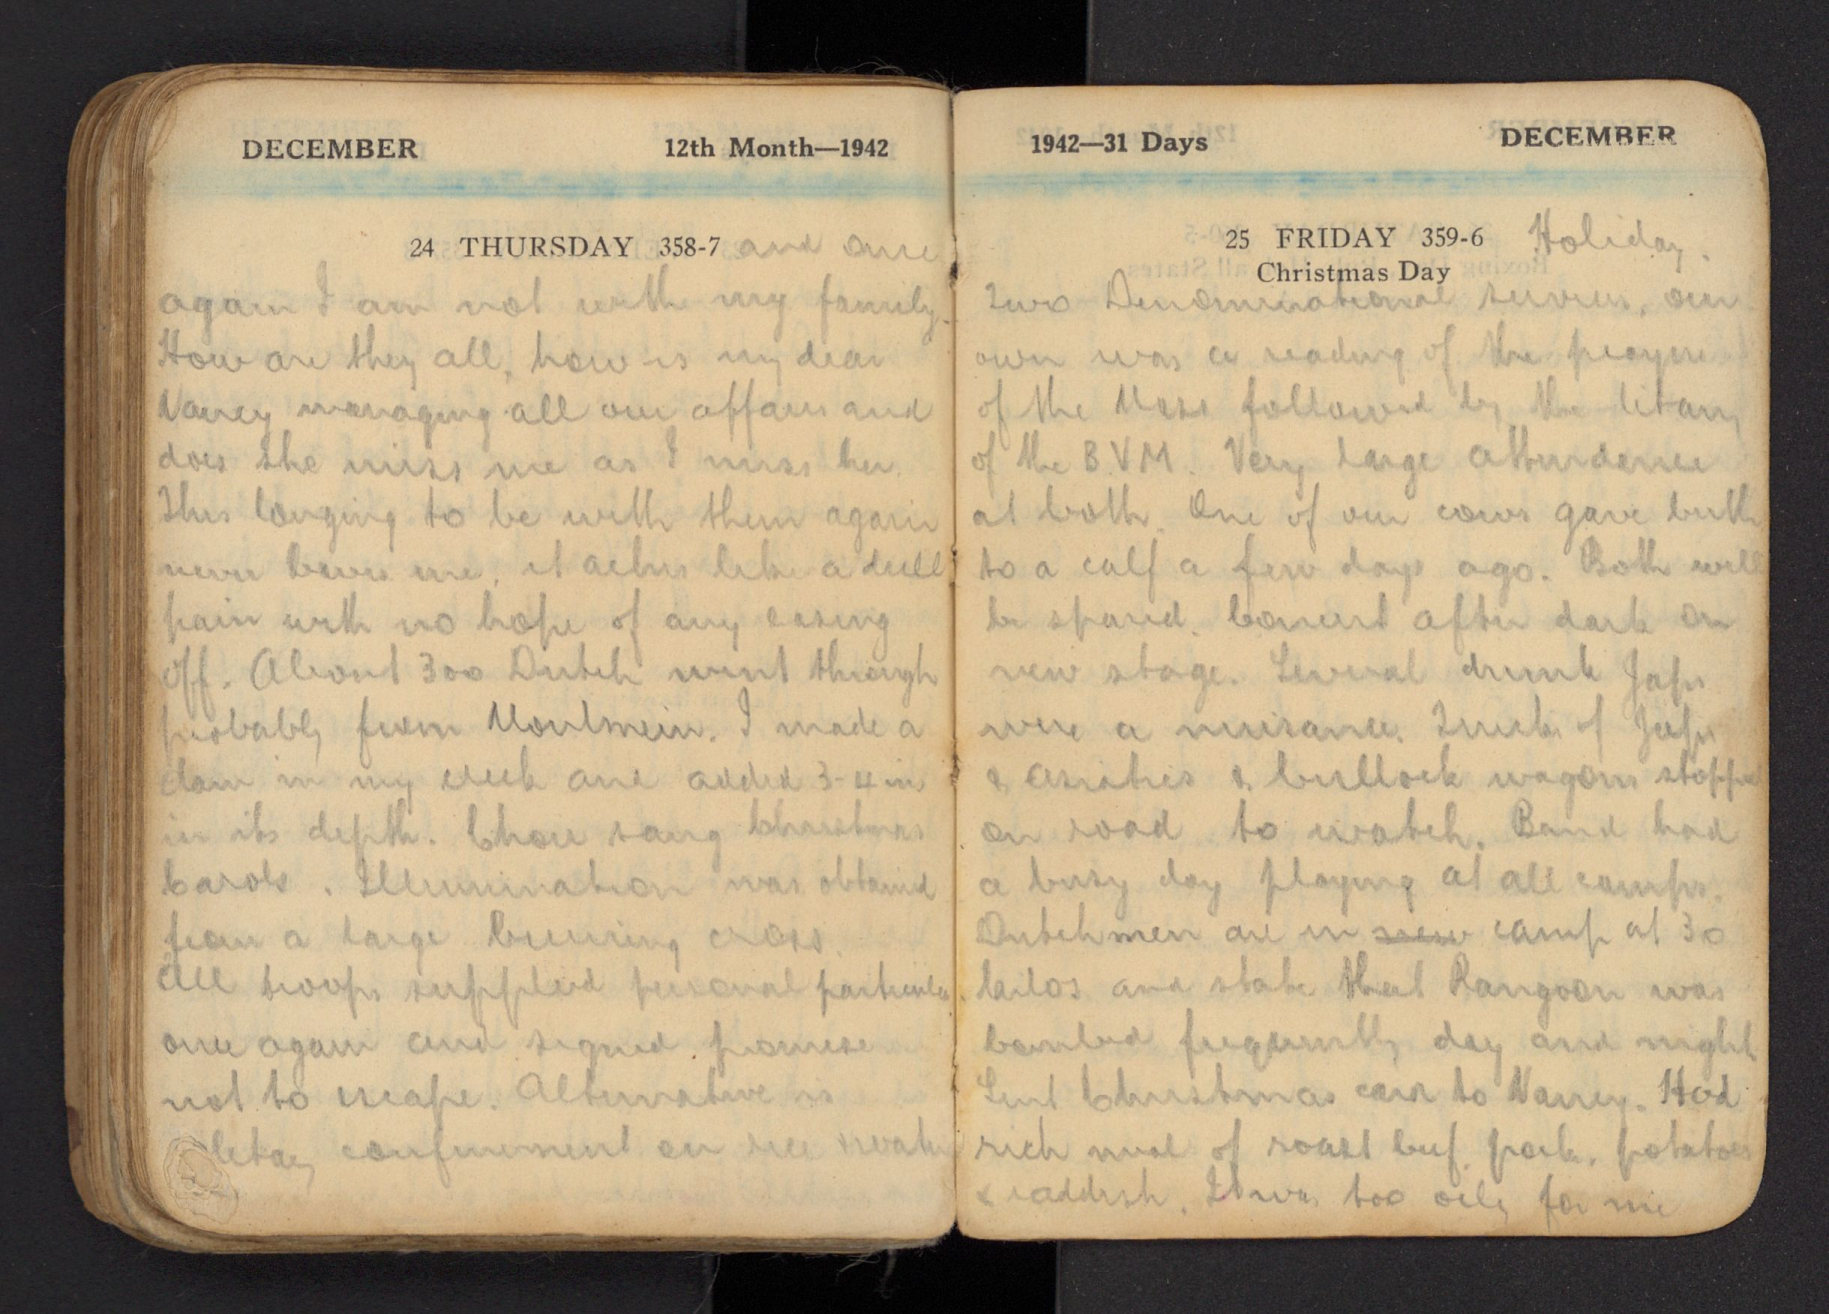 DECEMBER 12th Month—1942
24 THURSDAY 358-7 and once
again I am not with my family.
How are they all, how is my dear
Nancy managing all our affairs and
does she miss me as I miss her.
This longing to be with them again
never leaves me, it aches like a dull
pain with no hope of any easing
off. About 300 Dutch went through
probably from Moulmein. I made a
dam in my creek and added 3-4 in
in its depth. Choir sang Christmas
Carols. Illumination was obtained
from a large burning cross.
All troops supplied personal particulars
once again and signed promise
not to escape. Alternative is
solitary confinement on rice & water
1942—31 Days DECEMBER
25 FRIDAY 359-6 Holiday.
Christmas Day
Two Denominational services, our
own was a reading of the prayers
of the Mass followed by the litany
of the B.V.M. Very large attendance
at both. One of our cows gave birth
to a calf a few days ago. Both will
be spared. Concert after dark on
new stage. Several drunk Japs
were a nuisance. Trucks of Japs
& Asiatics & bullock wagons stopped
on road to watch. Band had
a busy day playing at all camps.
Dutchmen are in new camp at 30
kilos and state that Rangoon was
bombed frequently day and night
Sent Christmas card to Nancy. Had
rich meal of roast beef, pork, potatoes
& raddish. It was too oily for me